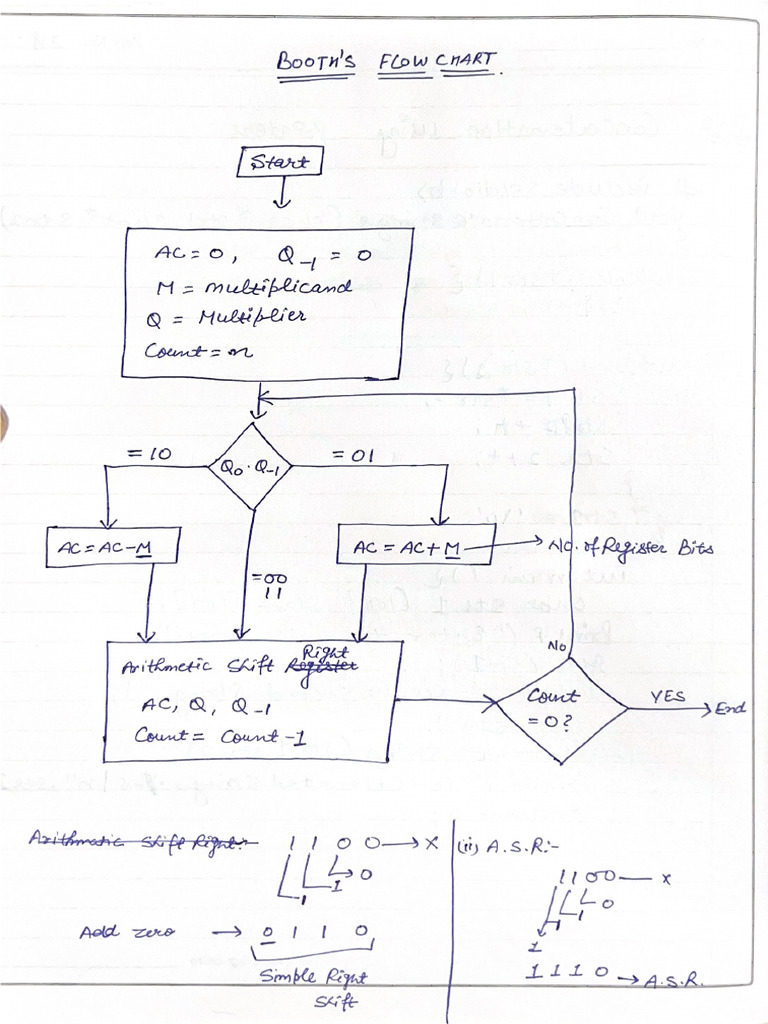 BOOTH'S FLOW CHART.
Start
AC = 0, Q-1 = 0
M = multiplicand
Q = Multiplier
Count = n
= 10
Q0 . Q-1
= 01
AC = AC - M
=00
11
AC = AC + M
No. of Register Bits
Arithmetic Shift Right
AC, Q, Q-1
Count = Count - 1
No
Count
= 0?
YES
End
Arithmatic Shift Right:-
1 1 0 0 → x
0
1
1
Add zero → 0 1 1 0
Simple Right
Shift
(ii) A.S.R:-
1100 — x
0
1
1
1
1 1 1 0 → A.S.R.